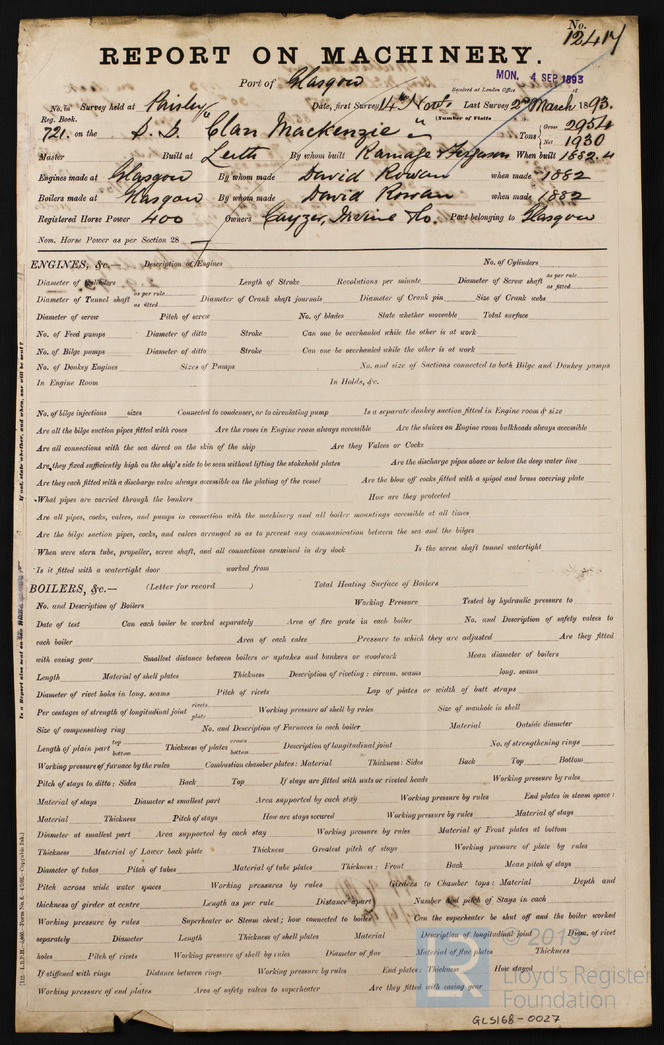 No.
12417
REPORT ON MACHINERY.
Port of Glasgow
MON. 4 SEP 1893
Received at London Office
No. in Survey held at Paisley Date, first Survey 14th Novr. Last Survey 2nd March 1893.
Reg. Book. (Number of Visits
721. on the S. S. "Clan Mackenzie" Tons Gross 2954
Net 1930
Master Built at Leith By whom built Ramage & Ferguson When built 1882.4
Engines made at Glasgow By whom made David Rowan when made 1882
Boilers made at Glasgow By whom made David Rowan when made 1882
Registered Horse Power 400 Owners Cayzer, Irvine & Co. Port belonging to Glasgow
Nom. Horse Power as per Section 28
ENGINES, &c.— Description of Engines No. of Cylinders
Diameter of Cylinders Length of Stroke Revolutions per minute Diameter of Screw shaft as per rule as fitted
Diameter of Tunnel shaft as per rule as fitted Diameter of Crank shaft journals Diameter of Crank pin Size of Crank webs
Diameter of screw Pitch of screw No. of blades State whether moveable Total surface
No. of Feed pumps Diameter of ditto Stroke Can one be overhauled while the other is at work
No. of Bilge pumps Diameter of ditto Stroke Can one be overhauled while the other is at work
No. of Donkey Engines Sizes of Pumps No. and size of Suctions connected to both Bilge and Donkey pumps
In Engine Room In Holds, &c.
No. of bilge injections sizes Connected to condenser, or to circulating pump Is a separate donkey suction fitted in Engine room & size
Are all the bilge suction pipes fitted with roses Are the roses in Engine room always accessible Are the sluices on Engine room bulkheads always accessible
Are all connections with the sea direct on the skin of the ship Are they Valves or Cocks
Are they fixed sufficiently high on the ship's side to be seen without lifting the stokehold plates Are the discharge pipes above or below the deep water line
Are they each fitted with a discharge valve always accessible on the plating of the vessel Are the blow off cocks fitted with a spigot and brass covering plate
What pipes are carried through the bunkers How are they protected
Are all pipes, cocks, valves, and pumps in connection with the machinery and all boiler mountings accessible at all times
Are the bilge suction pipes, cocks, and valves arranged so as to prevent any communication between the sea and the bilges
When were stern tube, propeller, screw shaft, and all connections examined in dry dock Is the screw shaft tunnel watertight
Is it fitted with a watertight door worked from
BOILERS, &c.— (Letter for record ) Total Heating Surface of Boilers
No. and Description of Boilers Working Pressure Tested by hydraulic pressure to
Date of test Can each boiler be worked separately Area of fire grate in each boiler No. and Description of safety valves to
each boiler Area of each valve Pressure to which they are adjusted Are they fitted
with easing gear Smallest distance between boilers or uptakes and bunkers or woodwork Mean diameter of boilers
Length Material of shell plates Thickness Description of riveting : circum. seams long. seams
Diameter of rivet holes in long. seams Pitch of rivets Lap of plates or width of butt straps
Per centages of strength of longitudinal joint rivets plate Working pressure of shell by rules Size of manhole in shell
Size of compensating ring No. and Description of Furnaces in each boiler Material Outside diameter
Length of plain part top bottom Thickness of plates crown bottom Description of longitudinal joint No. of strengthening rings
Working pressure of furnace by the rules Combustion chamber plates : Material Thickness : Sides Back Top Bottom
Pitch of stays to ditto : Sides Back Top If stays are fitted with nuts or riveted heads Working pressure by rules
Material of stays Diameter at smallest part Area supported by each stay Working pressure by rules End plates in steam space :
Material Thickness Pitch of stays How are stays secured Working pressure by rules Material of stays
Diameter at smallest part Area supported by each stay Working pressure by rules Material of Front plates at bottom
Thickness Material of Lower back plate Thickness Greatest pitch of stays Working pressure of plate by rules
Diameter of tubes Pitch of tubes Material of tube plates Thickness : Front Back Mean pitch of stays
Pitch across wide water spaces Working pressures by rules Girders to Chamber tops : Material Depth and
thickness of girder at centre Length as per rule Distance apart Number and pitch of Stays in each
Working pressure by rules Superheater or Steam chest; how connected to boiler Can the superheater be shut off and the boiler worked
separately Diameter Length Thickness of shell plates Material Description of longitudinal joint Diam. of rivet
holes Pitch of rivets Working pressure of shell by rules Diameter of flue Material of flue plates Thickness
If stiffened with rings Distance between rings Working pressure by rules End plates : Thickness How stayed
Working pressure of end plates Area of safety valves to superheater Are they fitted with easing gear
If not, state whether, and when, one will be sent?
Is a Report also sent on the
LR
© 2019
Lloyd's Register
Foundation
GLS168-0027